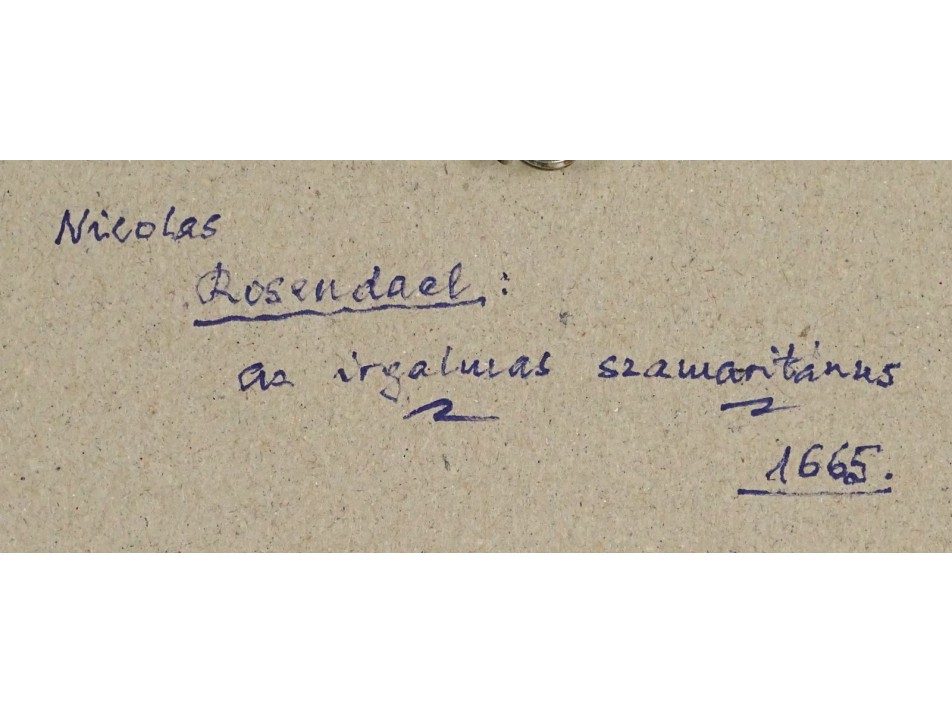 Nicolas
Rosendael:
az irgalmas szamaritánus
1665.